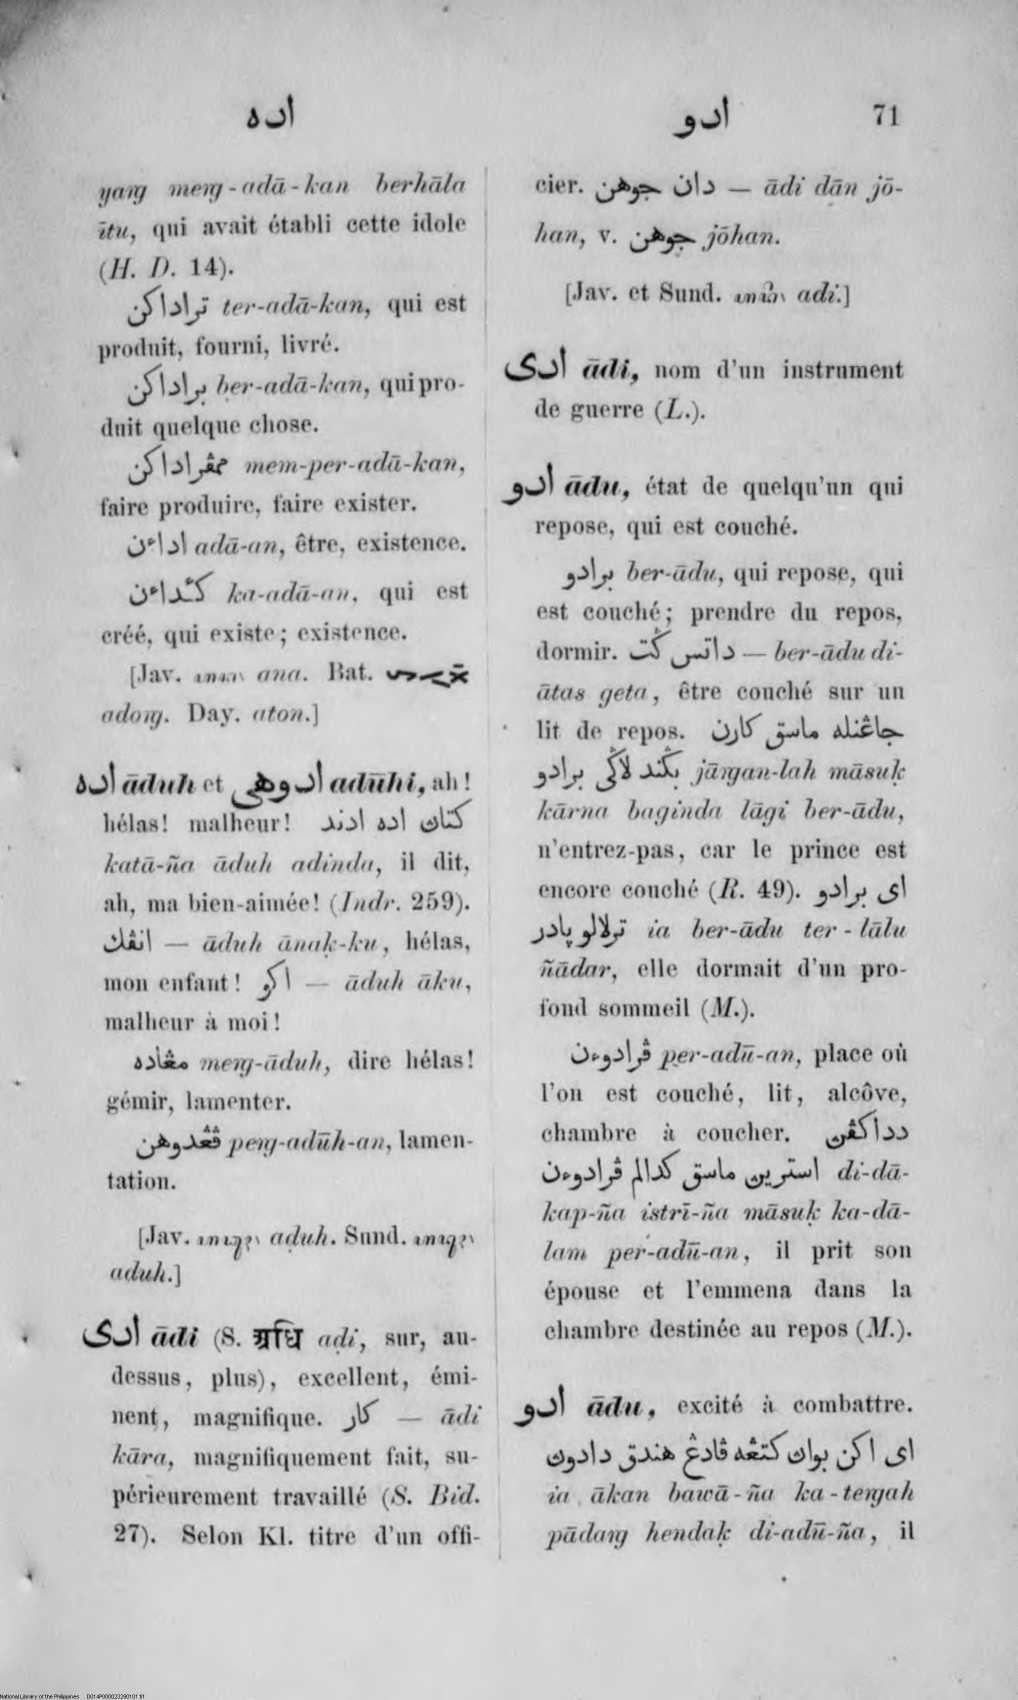 اده
ادو 71
yaṅg meṅg-adā-kan berhāla
ītu, qui avait établi cette idole
(H. D. 14).
تراداكن ter-adā-kan, qui est
produit, fourni, livré.
براداكن ber-adā-kan, qui pro-
duit quelque chose.
ممڤراداكن mem-per-adā-kan,
faire produire, faire exister.
اداءن adā-an, être, existence.
كأداءن ka-adā-an, qui est
créé, qui existe; existence.
[Jav. ana. Bat.
adoṅg. Day. aton.]
اده āduh et ادوهي adūhi, ah!
hélas! malheur! كتاث اده ادند
katā-ña āduh adinda, il dit,
ah, ma bien-aimée! (Indr. 259).
انقك — āduh ānaḳ-ku, hélas,
mon enfant! اكو — āduh āku,
malheur à moi!
مڠاده meṅg-āduh, dire hélas!
gémir, lamenter.
ڤڠدوهن peṅg-adūh-an, lamen-
tation.
[Jav. aḍuh. Sund.
aduh.]
ادي ādi (S. अधि aḍi, sur, au-
dessus, plus), excellent, émi-
nent, magnifique. كار — ādi
kāra, magnifiquement fait, su-
périeurement travaillé (S. Bid.
27). Selon Kl. titre d'un offi-
cier. دان جوهن — ādi dān jō-
han, v. جوهن jōhan.
[Jav. et Sund. adi.]
ادي ādi, nom d'un instrument
de guerre (L.).
ادو ādu, état de quelqu'un qui
repose, qui est couché.
برادو ber-ādu, qui repose, qui
est couché; prendre du repos,
dormir. داتس گت — ber-ādu di-
ātas geta, être couché sur un
lit de repos. جاڠنله ماسق كارن
بگند لاگي برادو jāṅgan-lah māsuḳ
kārna baginda lāgi ber-ādu,
n'entrez-pas, car le prince est
encore couché (R. 49). اي برادو
ترلالو ڽادر ia ber-ādu ter-lālu
ñādar, elle dormait d'un pro-
fond sommeil (M.).
ڤرادوءن per-adū-an, place où
l'on est couché, lit, alcôve,
chambre à coucher. دداكڤن
استرين ماسق كدالم ڤرادوءن di-dā-
kap-ña istrī-ña māsuḳ ka-dā-
lam per-adū-an, il prit son
épouse et l'emmena dans la
chambre destinée au repos (M.).
ادو ādu, excité à combattre.
اي اكن بواڽ كتڠه ڤادڠ هندق دادوڽ
ia ākan bawā-ña ka-teṅgah
pādaṅg hendaḳ di-adū-ña, il
National Library of the Philippines